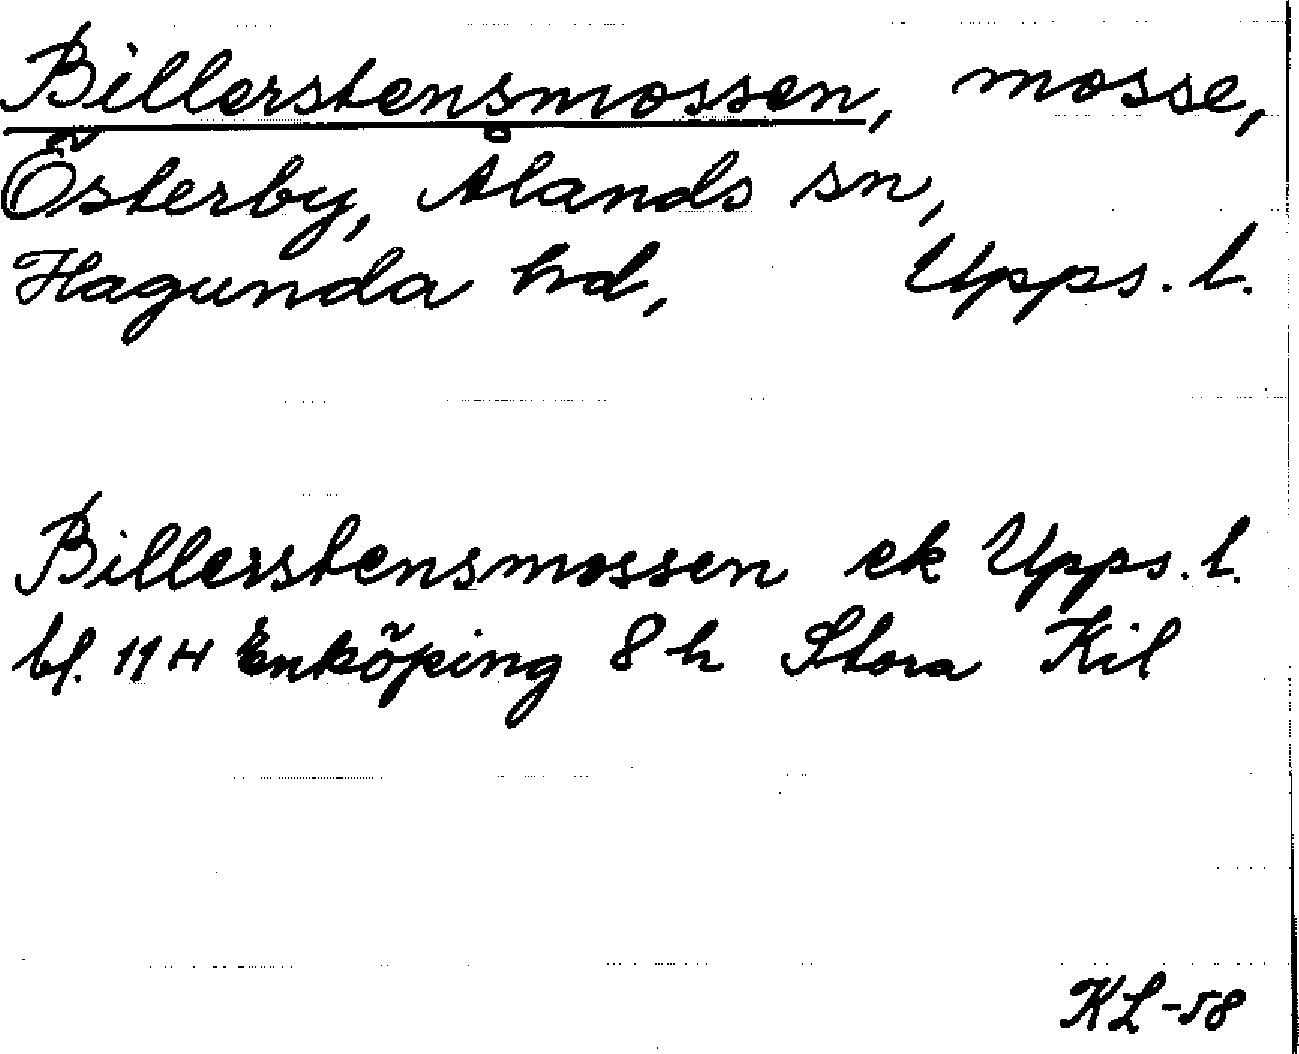 Billerstensmossen, mosse,
Österby, Ålands sn,
Hagunda hd, Upps. l.
Billerstensmossen ek Upps. l.
bl. 11 H Enköping 8 h Stora Kil
KL-58